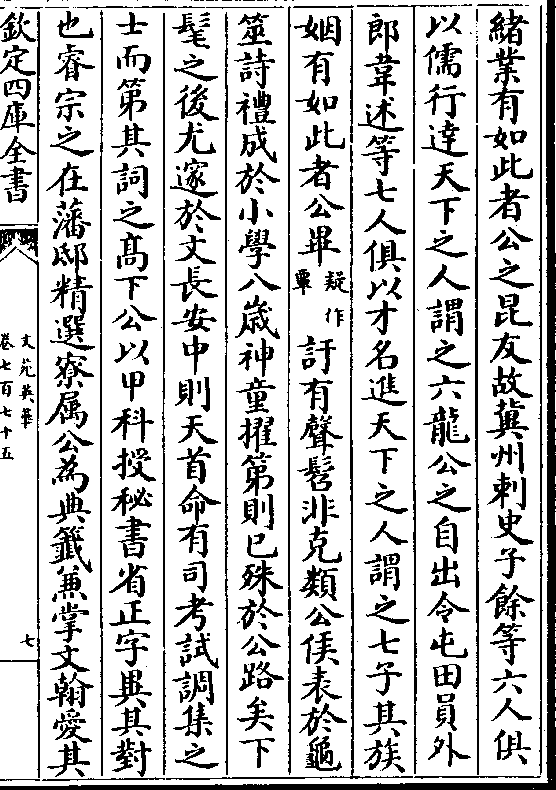 緒業有如此者公之昆友故冀州刺史子餘等六人俱
以儒行達天下之人謂之六龍公之自出今屯田員外
郎韋述等七人俱以才名進天下之人謂之七子其族
姻有如此者公畢疑作覃訏有聲髫丱克類公侯表於龜
筮詩禮成於小學八歲神童擢第則已殊於公路矣下
髦之後尤邃於文長安中則天首命有司考試調集之
士而第其詞之髙下公以甲科授秘書省正字與其對
也睿宗之在藩邸精選寮屬公為典籤兼掌文翰愛其
欽定四庫全書
文苑英華
卷七百七十五
七